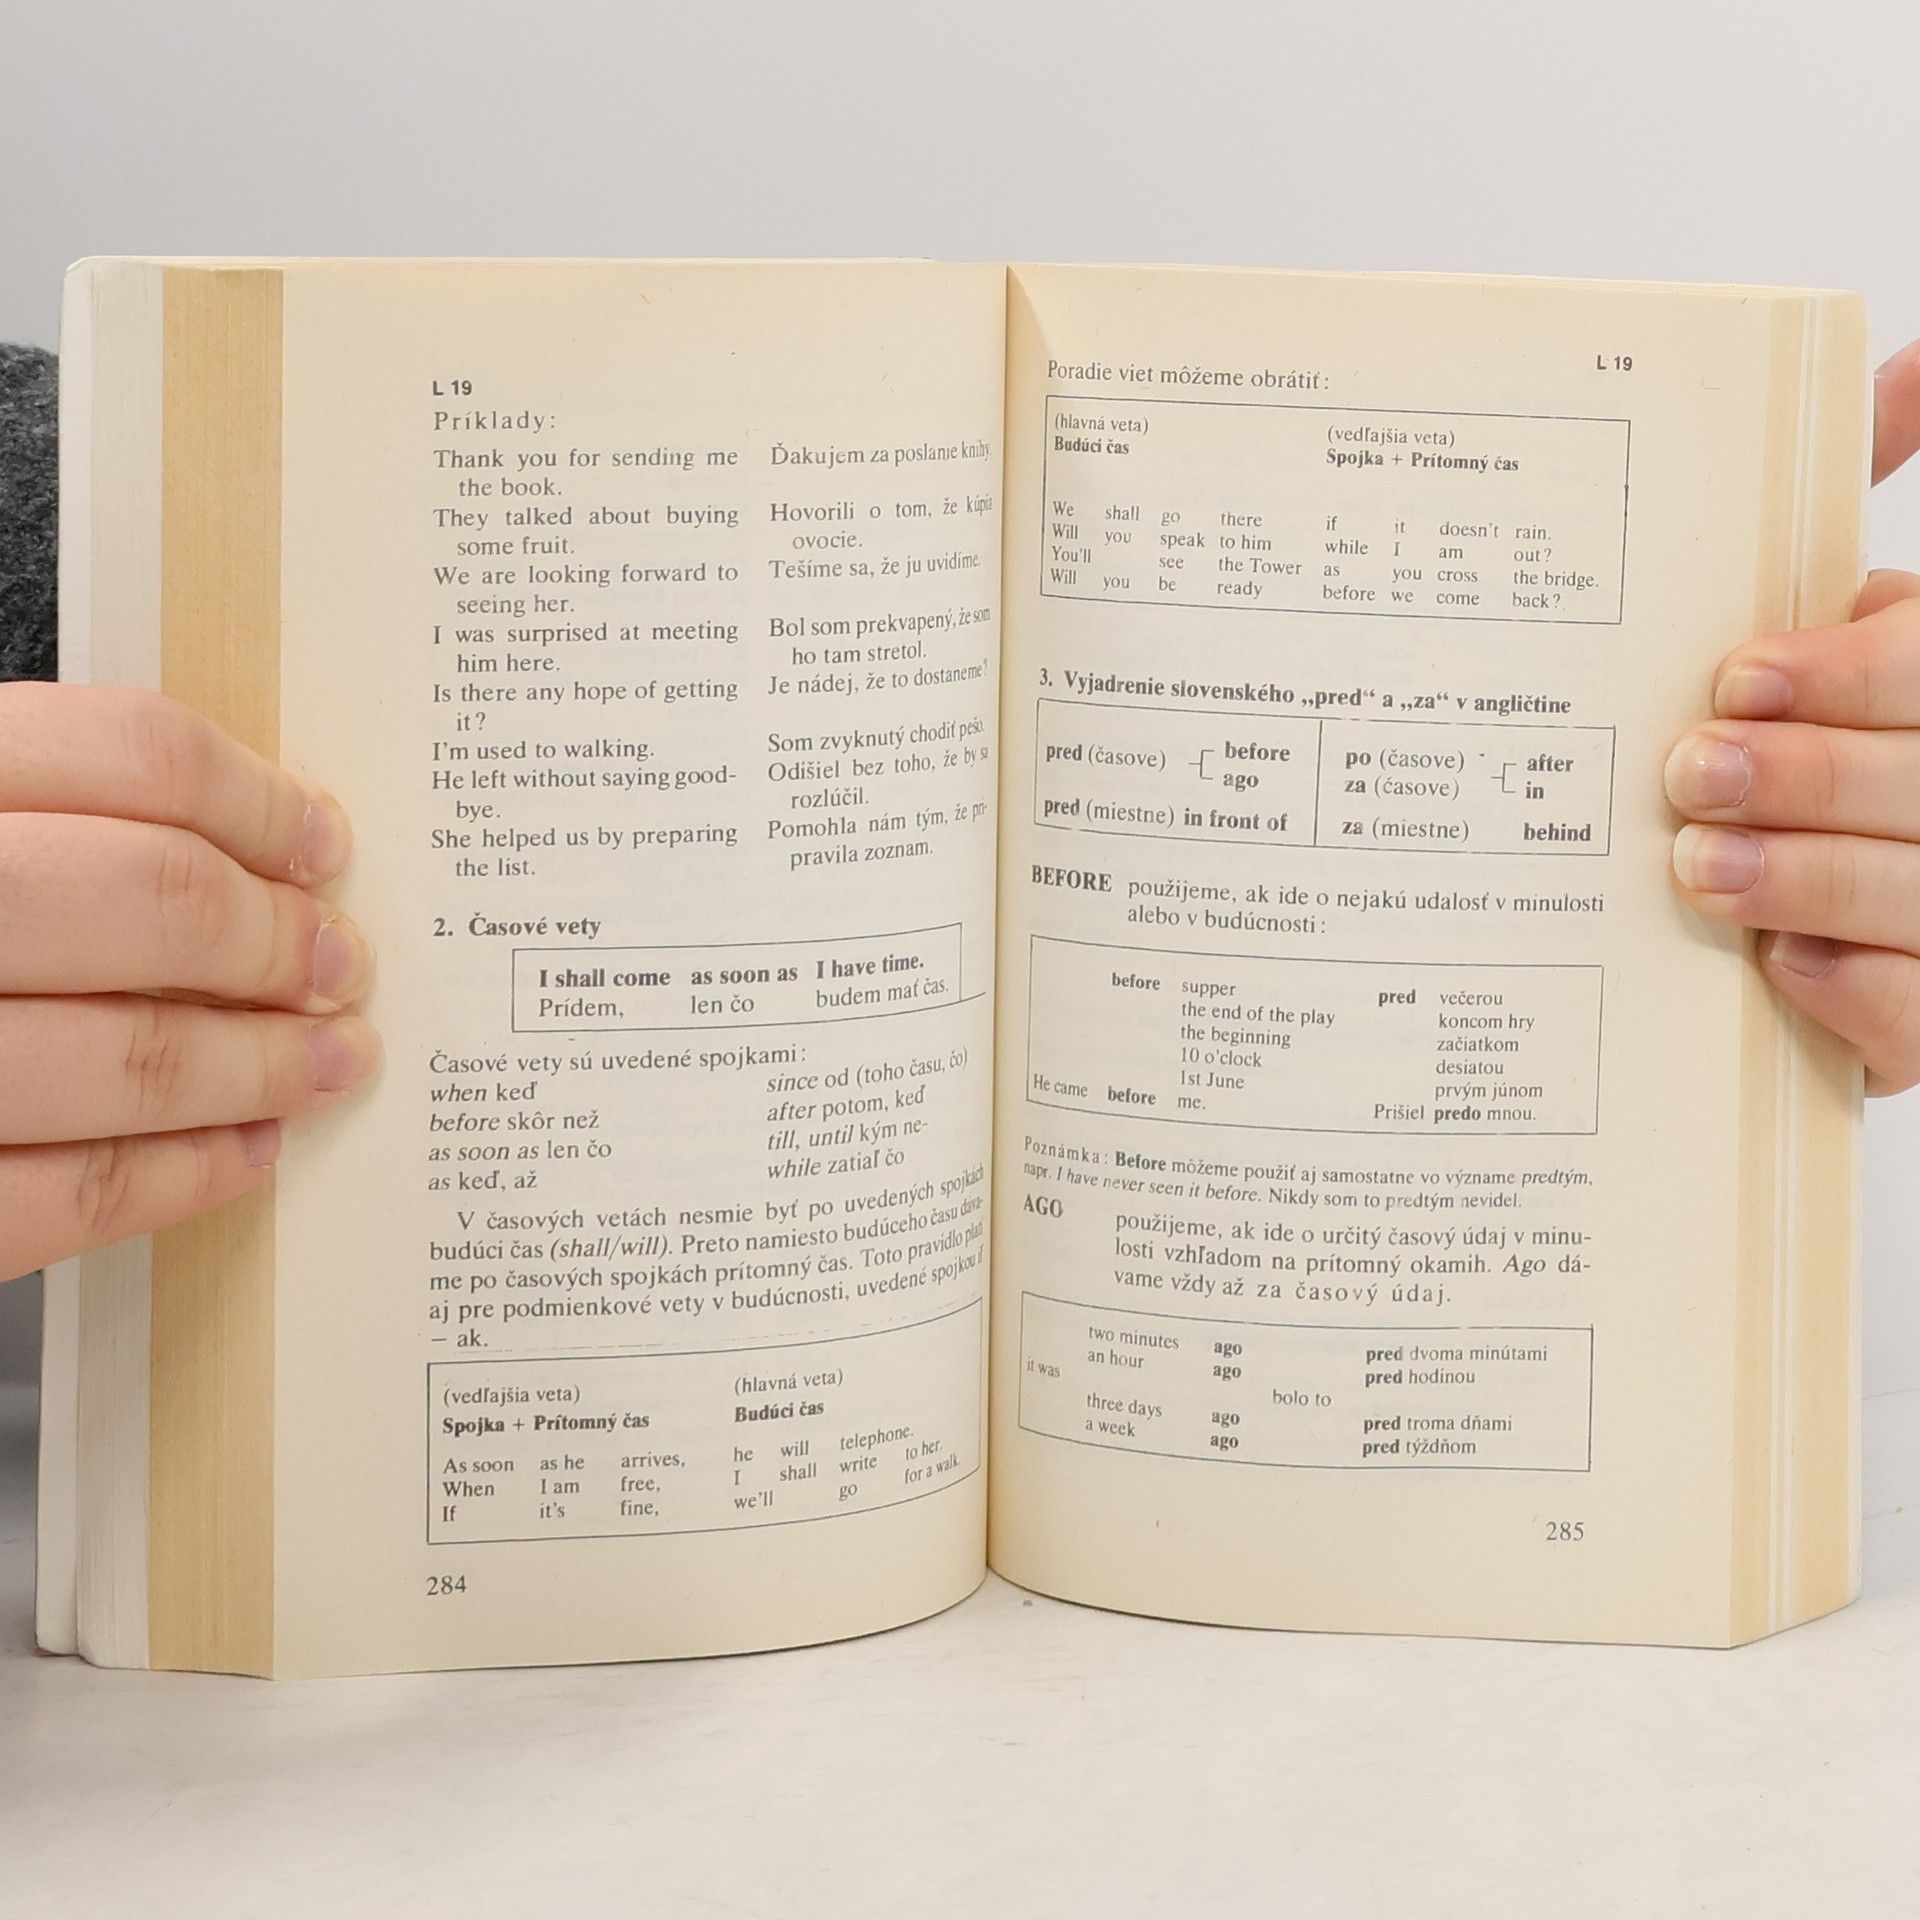 L 19
Príklady:
Thank you for sending me
the book.
Ďakujem za poslanie knihy.
They talked about buying
some fruit.
Hovorili o tom, že kúpia
ovocie.
We are looking forward to
seeing her.
Tešíme sa, že ju uvidíme.
I was surprised at meeting
him here.
Bol som prekvapený, že som
ho tam stretol.
Is there any hope of getting
it?
Je nádej, že to dostaneme?
I'm used to walking.
Som zvyknutý chodiť pešo.
He left without saying good-
bye.
Odišiel bez toho, že by sa
rozlúčil.
She helped us by preparing
the list.
Pomohla nám tým, že pri-
pravila zoznam.
2. Časové vety
I shall come as soon as I have time.
Prídem, len čo budem mať čas.
Časové vety sú uvedené spojkami:
when keď
before skôr než
as soon as len čo
as keď, až
since od (toho času, čo)
after potom, keď
till, until kým ne-
while zatiaľ čo
V časových vetách nesmie byť po uvedených spojkách
budúci čas (shall/will). Preto namiesto budúceho času dáva-
me po časových spojkách prítomný čas. Toto pravidlo platí
aj pre podmienkové vety v budúcnosti, uvedené spojkou if
– ak.
(vedľajšia veta) (hlavná veta)
Spojka + Prítomný čas Budúci čas
As soon as he arrives, he will telephone.
When I am free, I shall write to her.
If it's fine, we'll go for a walk.
284
L 19
Poradie viet môžeme obrátiť:
(hlavná veta) (vedľajšia veta)
Budúci čas Spojka + Prítomný čas
We shall go there if it doesn't rain.
Will you speak to him while I am out?
You'll see the Tower as you cross the bridge.
Will you be ready before we come back?
3. Vyjadrenie slovenského „pred“ a „za“ v angličtine
pred (časove) before
ago
pred (miestne) in front of
po (časove) after
za (časove) in
za (miestne) behind
BEFORE použijeme, ak ide o nejakú udalosť v minulosti
alebo v budúcnosti:
before supper pred večerou
the end of the play koncom hry
the beginning začiatkom
10 o'clock desiatou
1st June prvým júnom
He came before me. Prišiel predo mnou.
Poznámka: Before môžeme použiť aj samostatne vo význame predtým,
napr. I have never seen it before. Nikdy som to predtým nevidel.
AGO použijeme, ak ide o určitý časový údaj v minu-
losti vzhľadom na prítomný okamih. Ago dá-
vame vždy až za časový údaj.
two minutes ago pred dvoma minútami
an hour ago pred hodinou
it was bolo to
three days ago pred troma dňami
a week ago pred týždňom
285